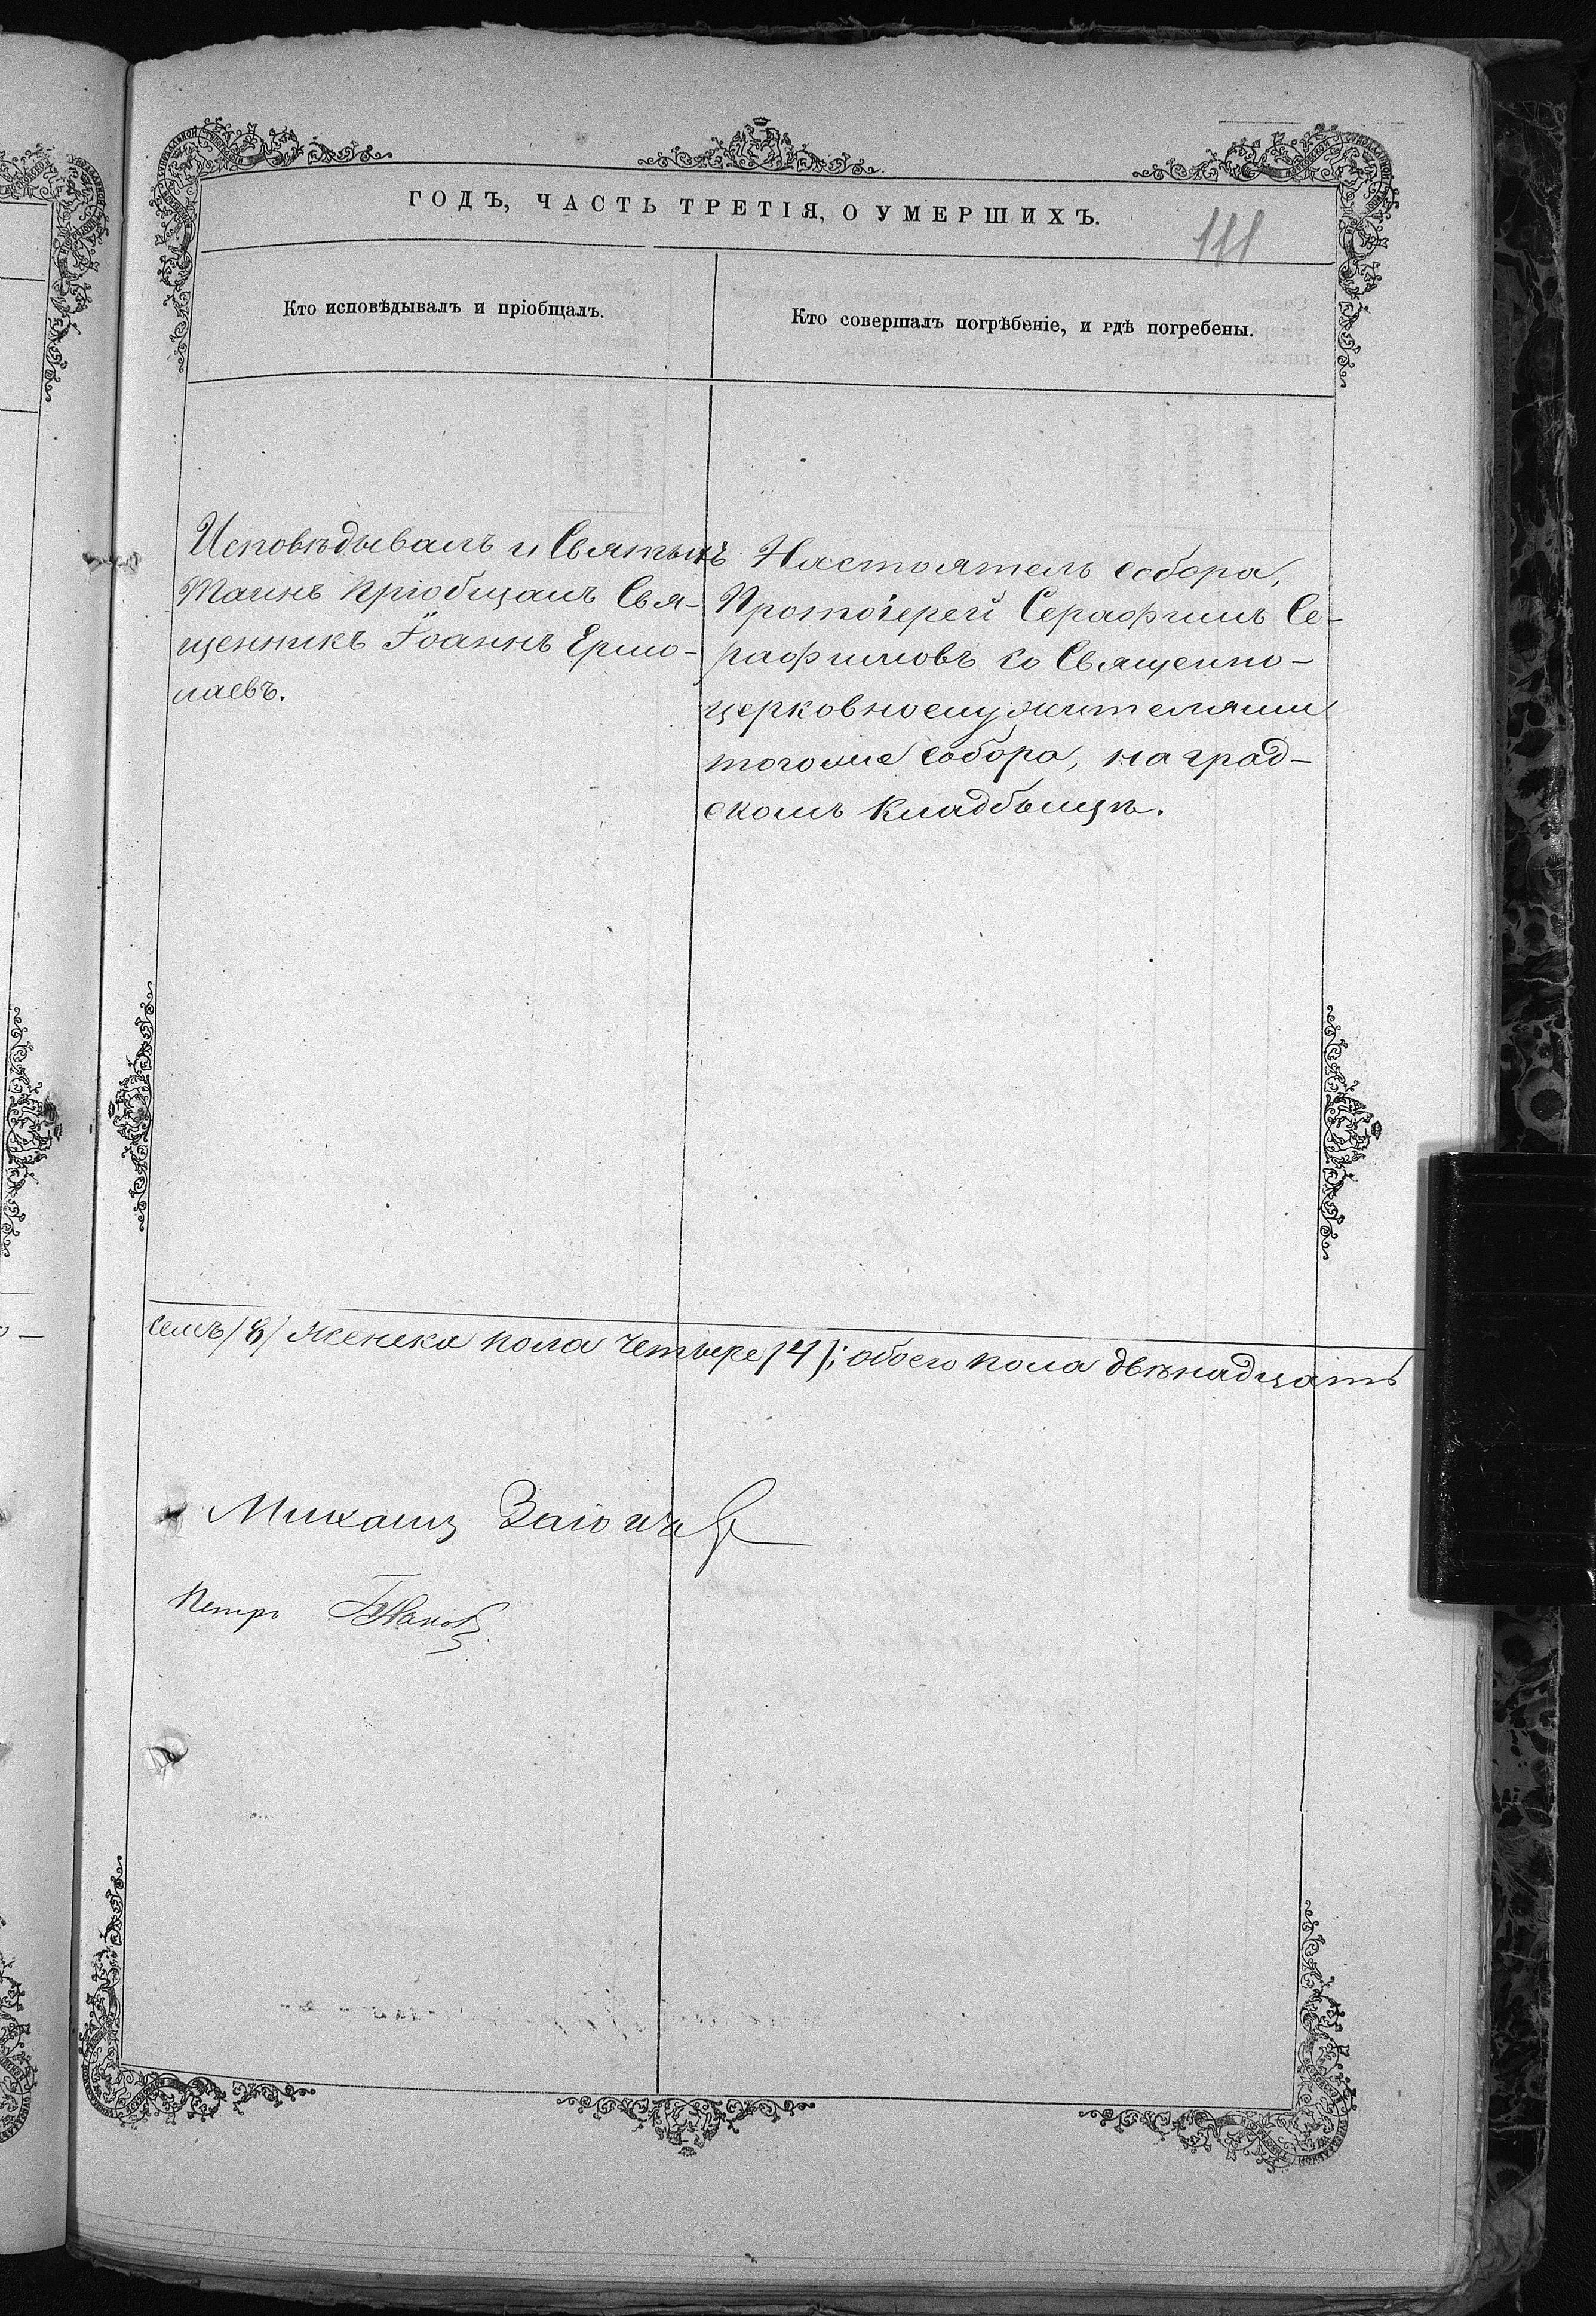 ГОДЪ, ЧАСТЬ ТРЕТІЯ, О УМЕРШИХЪ.
111
Кто исповѣдывалъ и пріобщалъ.
Кто совершалъ погрѣбеніе, и гдѣ погребены.
Исповѣдывалъ и Святыхъ
Таинъ пріобщалъ Свя-
щенникъ Іоаннъ Ермо-
лаевъ.
Настоятель собора,
Протоіерей Серафимъ Се-
рафимовъ со Священно-
церковнослужителями
тогоже собора, на град-
скомъ кладбыщѣ.
семь /8/ женска пола четыре /4/; обоего пола двѣнадцать
Михаилъ
Петръ